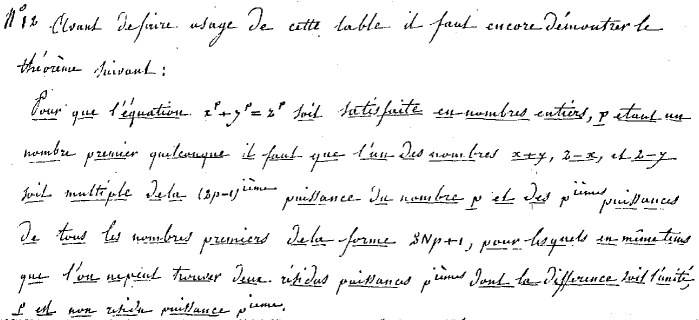 N° 12 Avant de faire usage de cette table il faut encore démontrer le
théorème suivant :
Pour que l'équation x^p + y^p = z^p soit satisfaite en nombres entiers, p etant un
nombre premier quelconque il faut que l'un des nombres x+y, z-x, et z-y
soit multiple de la (2p-1)^ième puissance du nombre p et des p^ièmes puissances
de tous les nombres premiers de la forme 2Np+1, pour lesquels en même tems
que l'on ne peut trouver deux résidus puissances p^ièmes dont la difference soit l'unité,
p est non résidu puissance p^ieme.